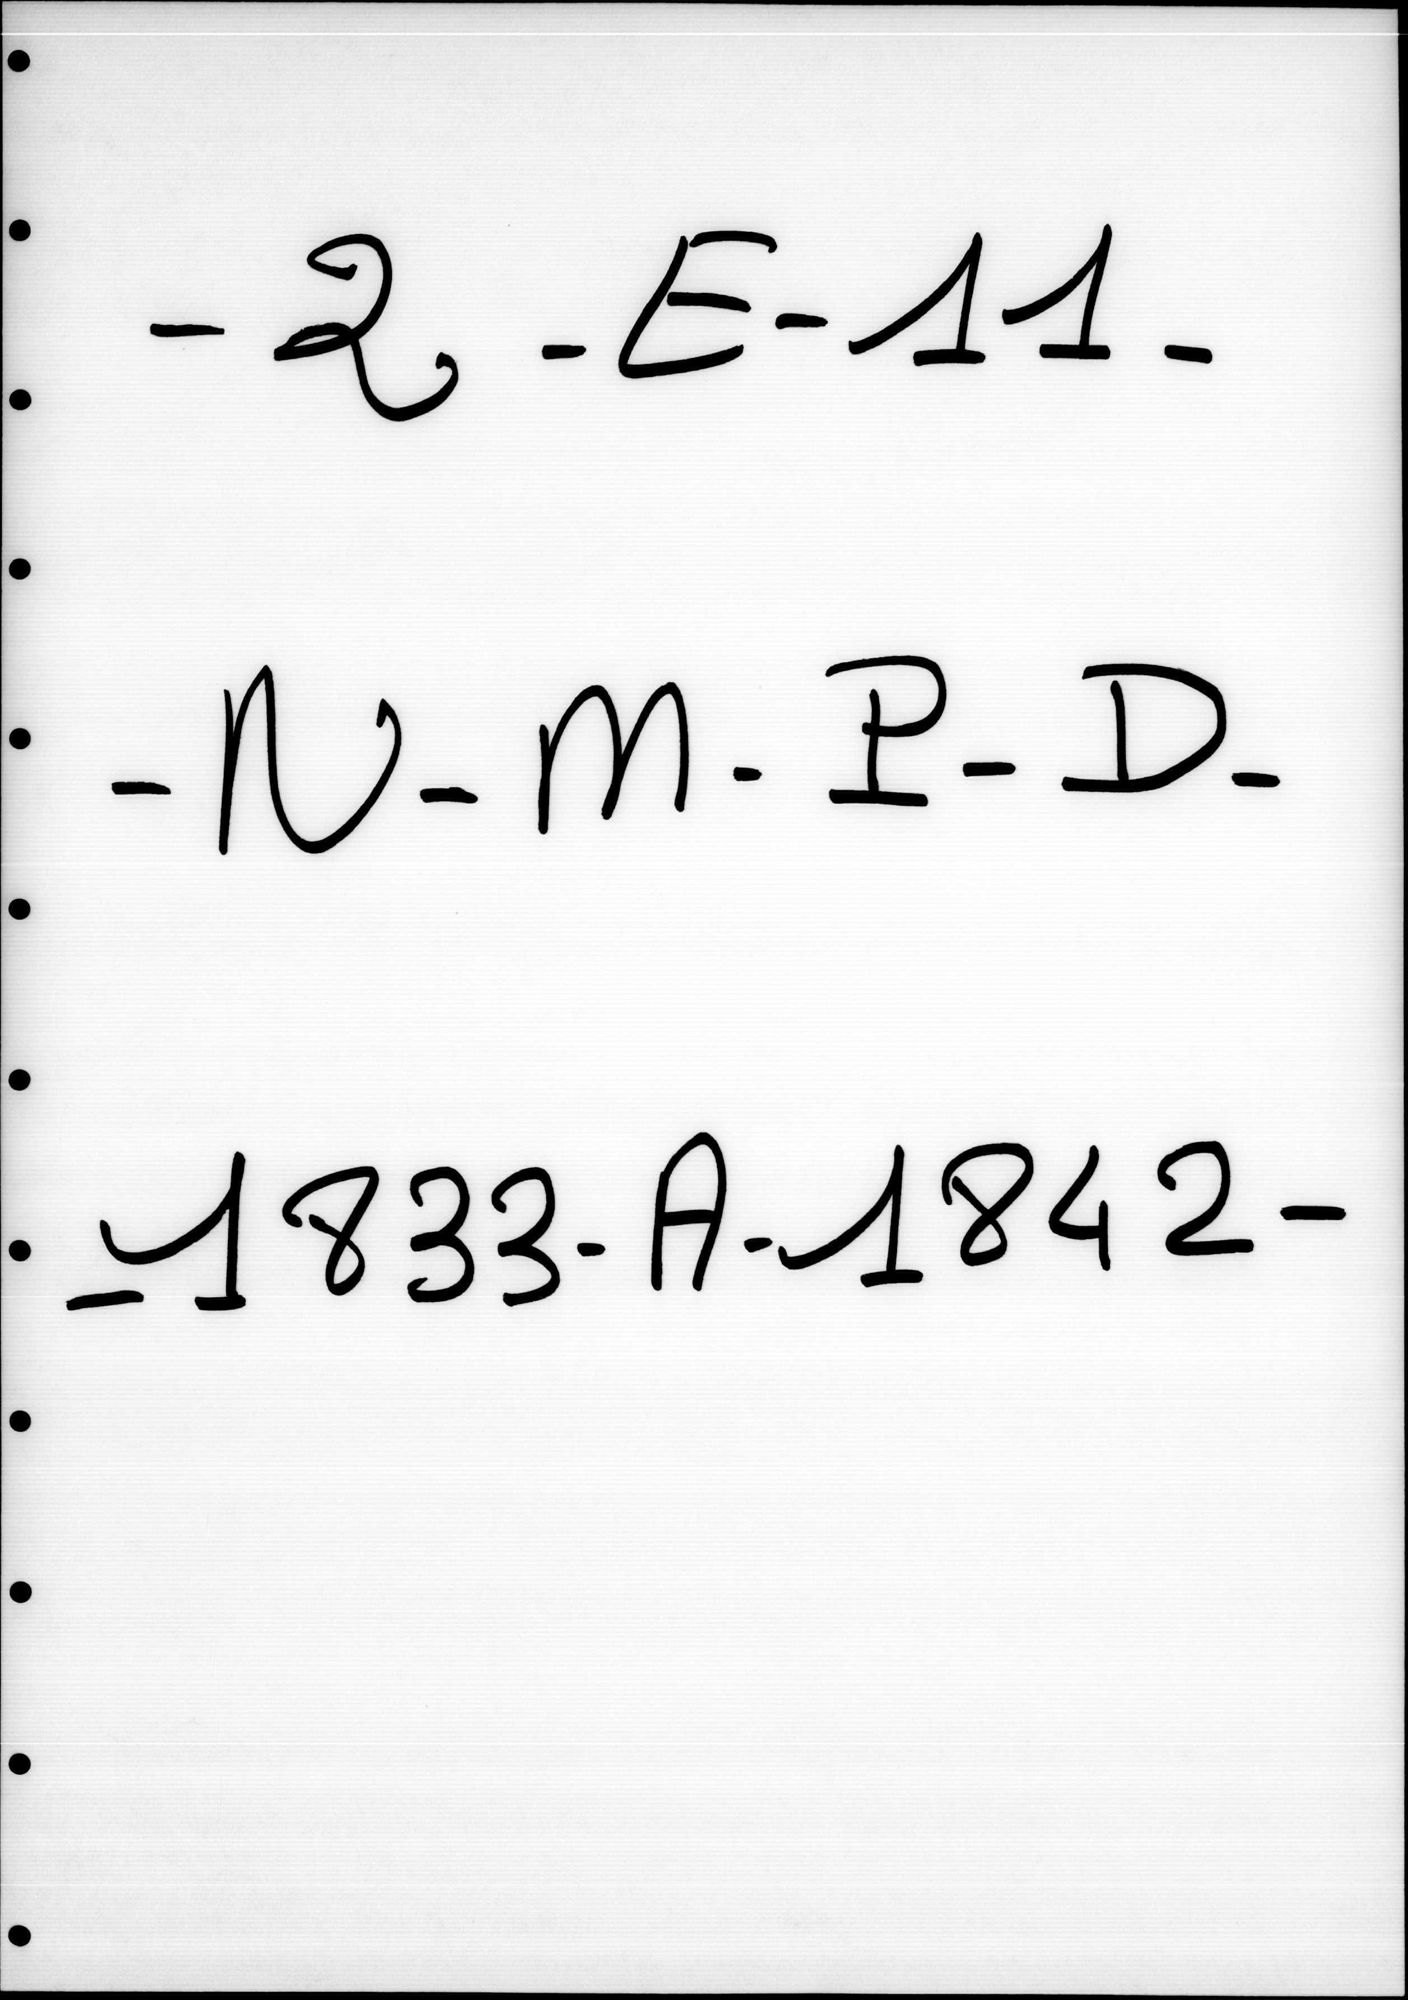 - 2 - E - 11 -
- N - M - P - D -
- 1833 - A - 1842 -